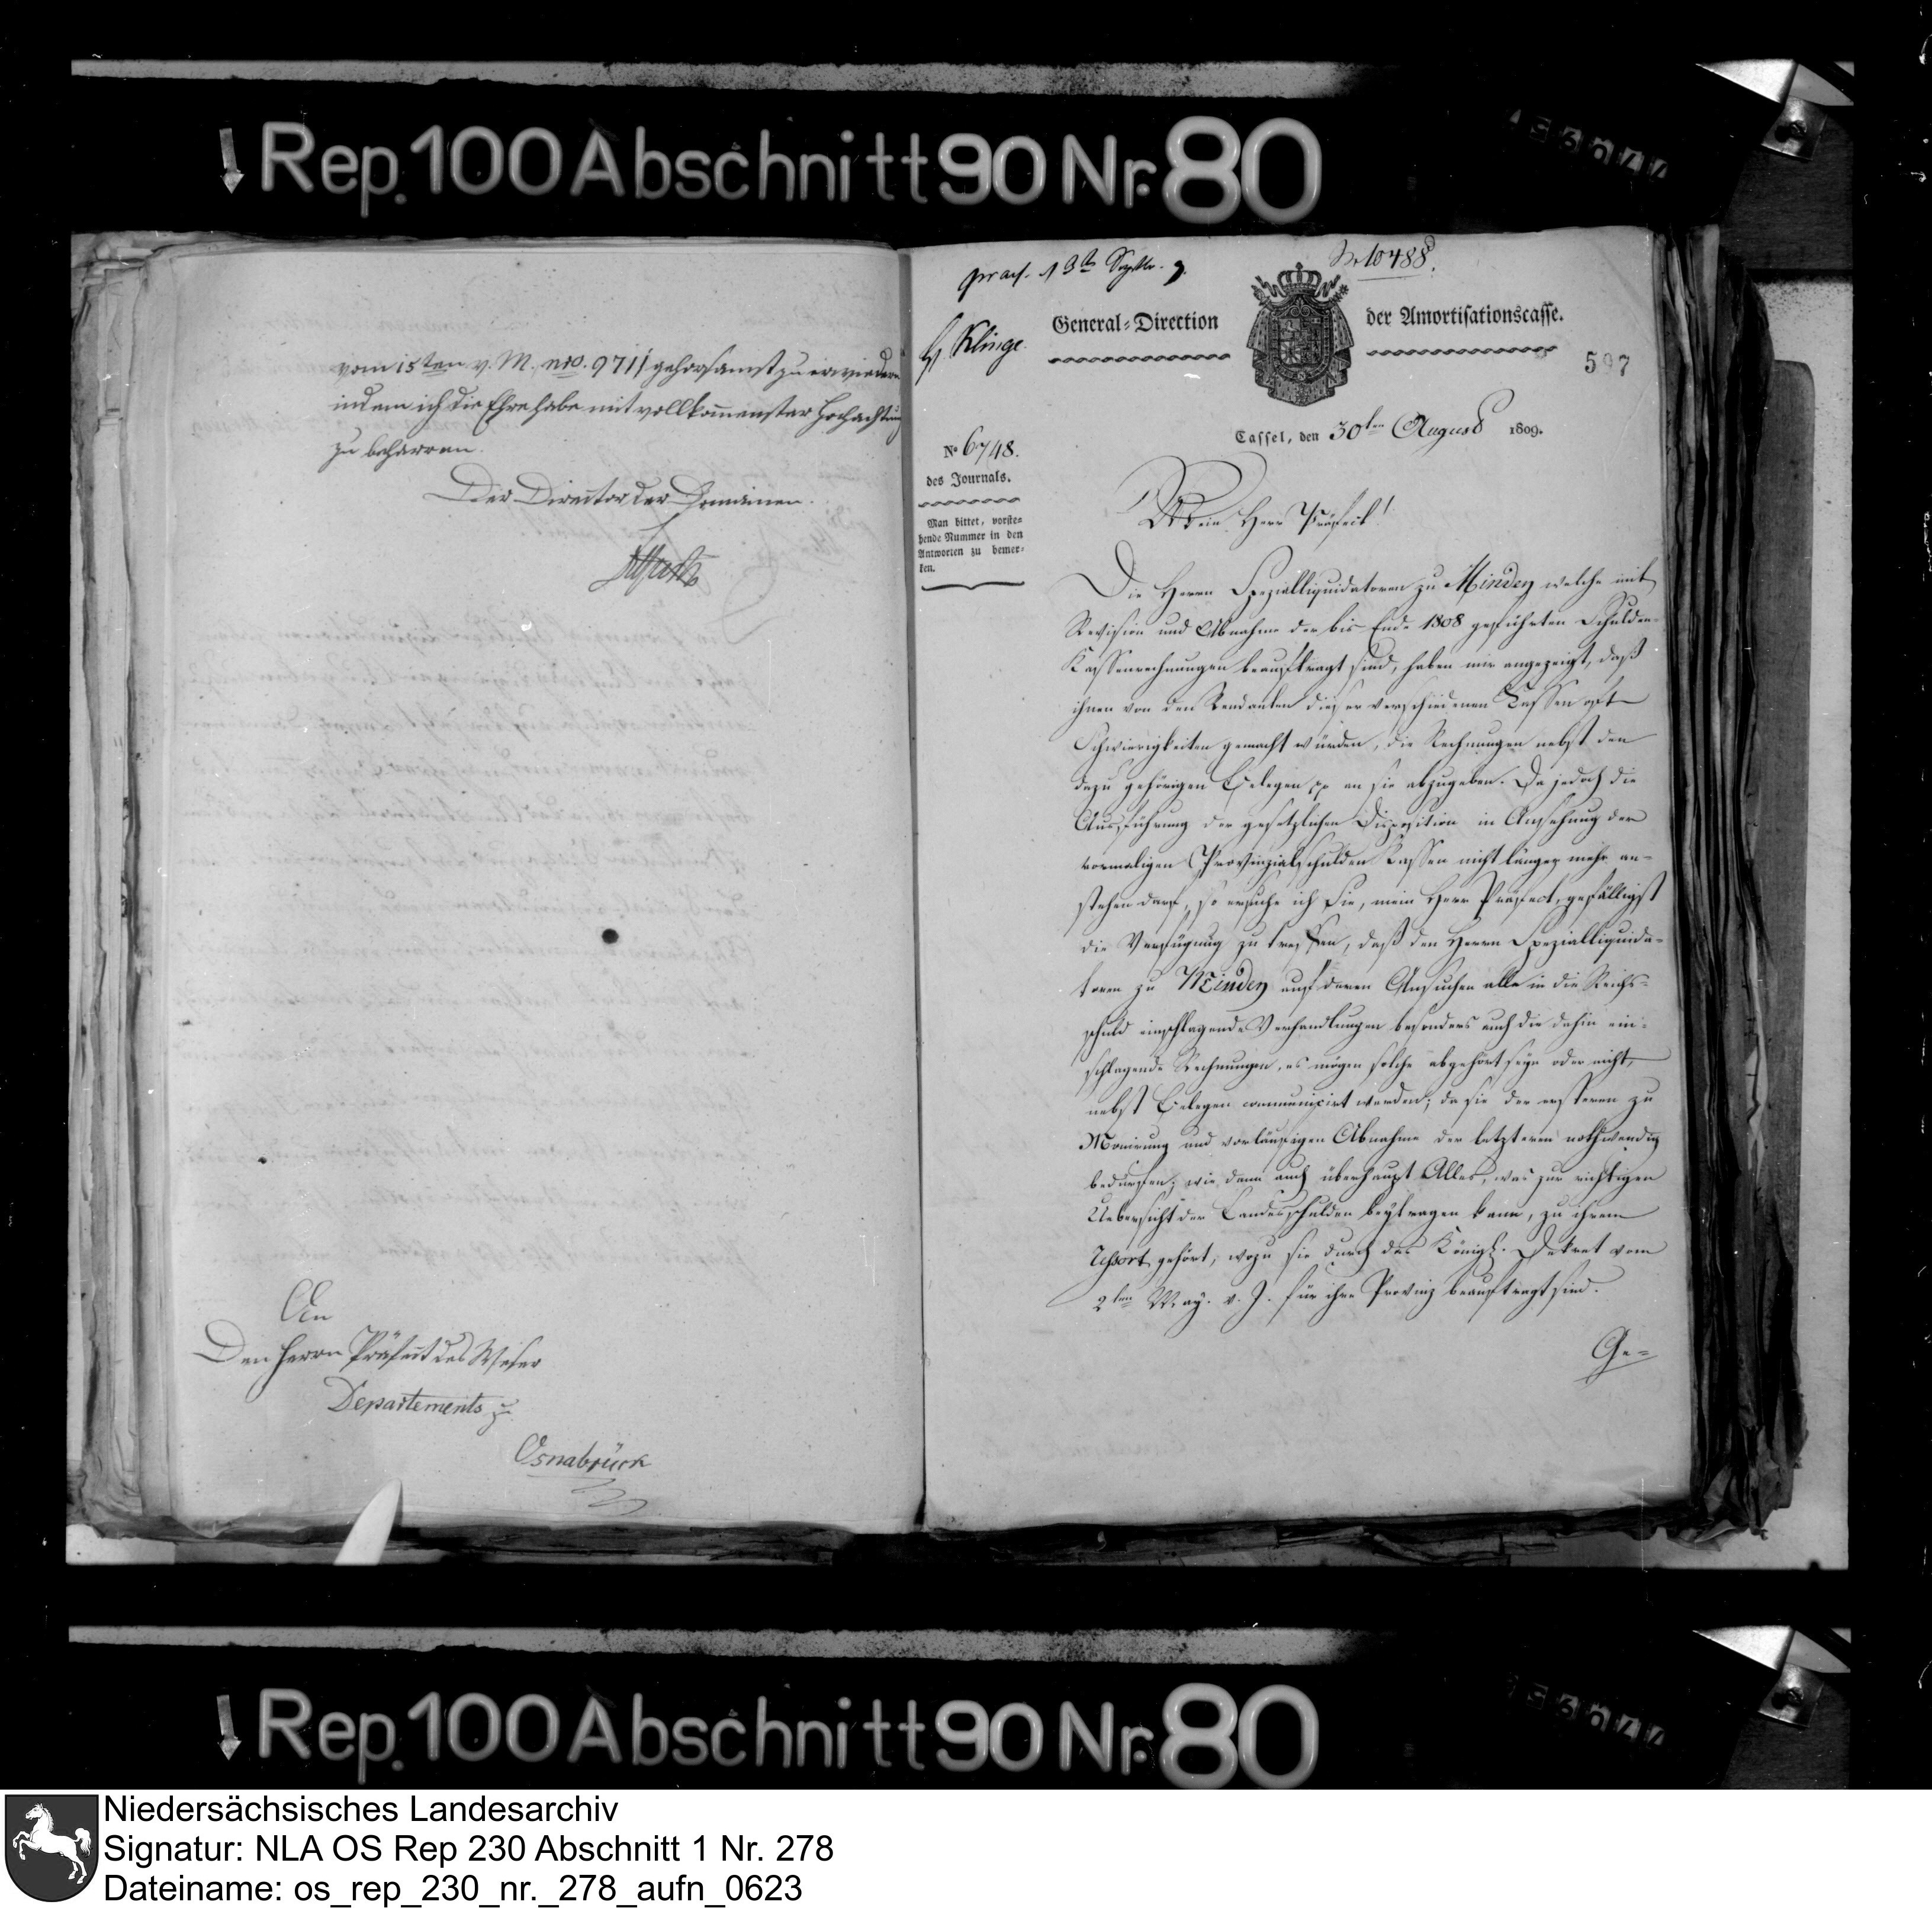 Rep. 100 Abschnitt 90 Nr. 80
vom 15ten v. M. nro. 9711 gehorsamst zu erwiedern
indem ich die Ehre habe mit vollkom̅enster Hochachtung
zu beharren.
Der Director der Domainen.
An
Den Herrn Präfect des Weser
Departements zu
Osnabrück
praes. 13t Septbr. 9.
Nr 10488.
H Klinge.
General-Direction der Amortisationscasse.
597
Cassel, den 30ten August 1809.
No 6748.
des Journals.
Man bittet, vorste-
hende Nummer in den
Antworten zu bemer-
ken.
Mein Herr Präfect!
Die Herrn Spezialliquidatoren zu Minden welche mit
Revision und Abnahme der bis Ende 1808 geführten Schulden-
Kassenrechnungen beauftragt sind, haben mir angezeigt, daß
ihnen von den Rendanten dieser verschiedenen Cassen oft
Schwierigkeiten gemacht würden, die Rechnungen nebst den
dazu gehörigen Belegen pp an sie abzugeben. Da jedoch die
Ausführung der gesetzlichen Disposition in Ansehung der
vormaligen Provinzialschulden Cassen nicht länger mehr an-
stehen darf, so ersuche ich Sie, mein Herr Präfect, gefälligst
die Verfügung zu treffen, daß den Herrn Spezialliquida-
toren zu Minden auf deren Ansuchen alle in die Reichs-
schuld einschlagende Verhandlungen besonders auch die dahin ein-
schlagende Rechnungen, es mögen solche abgehört seyn oder nicht,
nebst Belegen communicirt werden; da sie der ersteren zu
Monirung und vorläufigen Abnahme der letzteren nothwendig
bedürfen; wie dann auch überhaupt Alles, was zur richtigen
Uebersicht der Landesschulden beytragen kann, zu ihrem
Ressort gehört, wozu sie durch das Königl. Dekret vom
2ten May. v. J. für ihre Provinz beauftragt sind.
Ge-
Rep. 100 Abschnitt 90 Nr. 80
Niedersächsisches Landesarchiv
Signatur: NLA OS Rep 230 Abschnitt 1 Nr. 278
Dateiname: os_rep_230_nr._278_aufn_0623